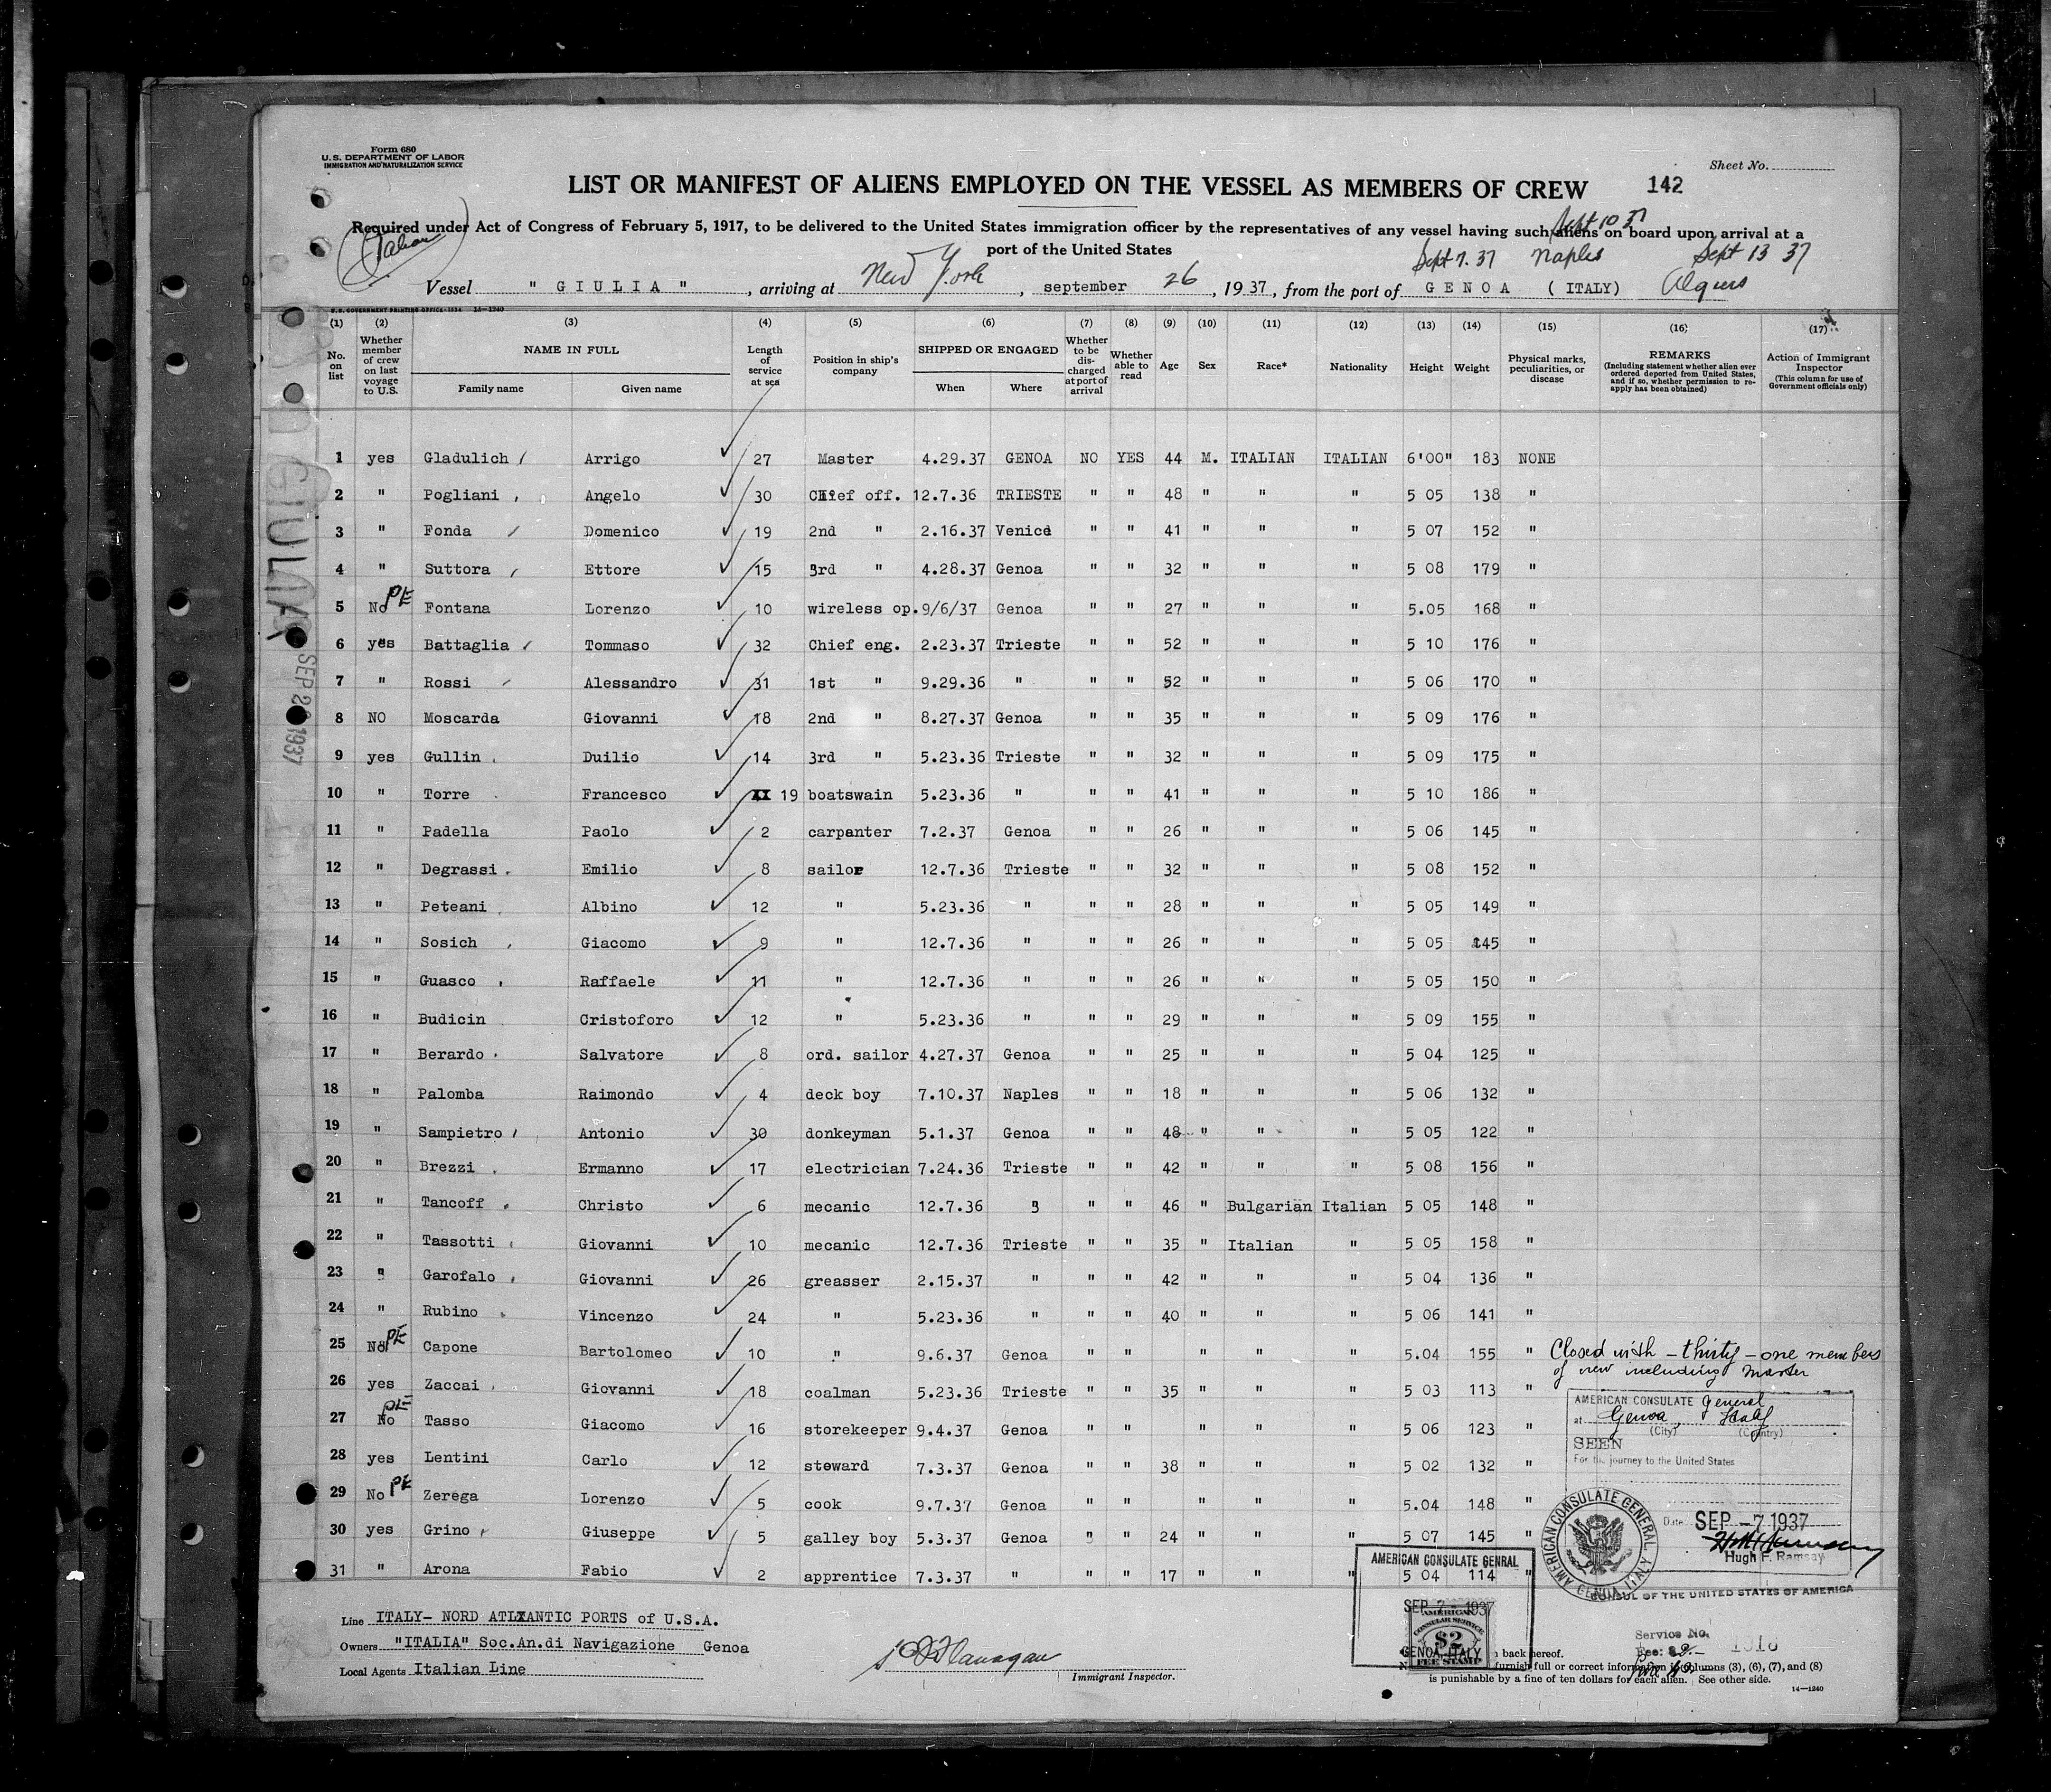 Form 680
U.S. DEPARTMENT OF LABOR
IMMIGRATION AND NATURALIZATION SERVICE
Sheet No.
LIST OR MANIFEST OF ALIENS EMPLOYED ON THE VESSEL AS MEMBERS OF CREW 142
Required under Act of Congress of February 5, 1917, to be delivered to the United States immigration officer by the representatives of any vessel having such aliens on board upon arrival at a
port of the United States
Sept 10 37
Sept 7. 37 Naples Sept 13 37
Vessel " GIULIA " , arriving at New York , september 26 , 1937, from the port of GENOA (ITALY) Algiers
U.S. GOVERNMENT PRINTING OFFICE: 1934 14—1240
(1) No. on list
(2) Whether member of crew on last voyage to U.S.
(3) NAME IN FULL Family name Given name
(4) Length of service at sea
(5) Position in ship's company
(6) SHIPPED OR ENGAGED When Where
(7) Whether to be discharged at port of arrival
(8) Whether able to read
(9) Age
(10) Sex
(11) Race*
(12) Nationality
(13) Height
(14) Weight
(15) Physical marks, peculiarities, or disease
(16) REMARKS (Including statement whether alien ever ordered deported from United States, and if so, whether permission to reapply has been obtained)
(17) Action of Immigrant Inspector (This column for use of Government officials only)
1 yes Gladulich Arrigo 27 Master 4.29.37 GENOA NO YES 44 M. ITALIAN ITALIAN 6'00" 183 NONE
2 " Pogliani Angelo 30 Chief off. 12.7.36 TRIESTE " " 48 " " " 5 05 138 "
3 " Fonda Domenico 19 2nd " 2.16.37 Venice " " 41 " " " 5 07 152 "
4 " Suttora Ettore 15 3rd " 4.28.37 Genoa " " 32 " " " 5 08 179 "
5 No PE Fontana Lorenzo 10 wireless op. 9/6/37 Genoa " " 27 " " " 5.05 168 "
6 yes Battaglia Tommaso 32 Chief eng. 2.23.37 Trieste " " 52 " " " 5 10 176 "
7 " Rossi Alessandro 31 1st " 9.29.36 " " " 52 " " " 5 06 170 "
8 NO Moscarda Giovanni 18 2nd " 8.27.37 Genoa " " 35 " " " 5 09 176 "
9 yes Gullin Duilio 14 3rd " 5.23.36 Trieste " " 32 " " " 5 09 175 "
10 " Torre Francesco 19 boatswain 5.23.36 " " " 41 " " " 5 10 186 "
11 " Padella Paolo 2 carpanter 7.2.37 Genoa " " 26 " " " 5 06 145 "
12 " Degrassi Emilio 8 sailor 12.7.36 Trieste " " 32 " " " 5 08 152 "
13 " Peteani Albino 12 " 5.23.36 " " " 28 " " " 5 05 149 "
14 " Sosich Giacomo 9 " 12.7.36 " " " 26 " " " 5 05 145 "
15 " Guasco Raffaele 11 " 12.7.36 " " " 26 " " " 5 05 150 "
16 " Budicin Cristoforo 12 " 5.23.36 " " " 29 " " " 5 09 155 "
17 " Berardo Salvatore 8 ord. sailor 4.27.37 Genoa " " 25 " " " 5 04 125 "
18 " Palomba Raimondo 4 deck boy 7.10.37 Naples " " 18 " " " 5 06 132 "
19 " Sampietro Antonio 30 donkeyman 5.1.37 Genoa " " 48 " " " 5 05 122 "
20 " Brezzi Ermanno 17 electrician 7.24.36 Trieste " " 42 " " " 5 08 156 "
21 " Tancoff Christo 6 mecanic 12.7.36 " " " 46 " Bulgarian Italian 5 05 148 "
22 " Tassotti Giovanni 10 mecanic 12.7.36 Trieste " " 35 " Italian " 5 05 158 "
23 " Garofalo Giovanni 26 greasser 2.15.37 " " " 42 " " " 5 04 136 "
24 " Rubino Vincenzo 24 " 5.23.36 " " " 40 " " " 5 06 141 "
25 No PE Capone Bartolomeo 10 " 9.6.37 Genoa " " " " " 5.04 155 "
26 yes Zaccai Giovanni 18 coalman 5.23.36 Trieste " " 35 " " " 5 03 113 "
27 No PE Tasso Giacomo 16 storekeeper 9.4.37 Genoa " " " " " 5 06 123 "
28 yes Lentini Carlo 12 steward 7.3.37 Genoa " " 38 " " " 5 02 132 "
29 No PE Zerega Lorenzo 5 cook 9.7.37 Genoa " " " " " 5.04 148 "
30 yes Grino Giuseppe 5 galley boy 5.3.37 Genoa " " 24 " " " 5 07 145 "
31 " Arona Fabio 2 apprentice 7.3.37 " " " 17 " " " 5 04 114 "
Closed with – thirty – one members
of crew including master
AMERICAN CONSULATE General
at Genoa, Italy
(City) (Country)
SEEN
For the journey to the United States
Date SEP -7 1937
Hugh F. Ramsay
CONSUL OF THE UNITED STATES OF AMERICA
AMERICAN CONSULATE GENERAL GENOA ITALY
AMERICAN CONSULATE GENRAL
SEP 7 - 1937
AMERICAN
CONSULAR SERVICE
$2
FEE STAMP
GENOA, ITALY
Service No. 1018
Fee:
GIULIA
SEP 26 1937
Line ITALY- NORD ATLANTIC PORTS of U.S.A.
Owners "ITALIA" Soc.An.di Navigazione Genoa
Local Agents Italian Line
Flanagan
Immigrant Inspector.
back hereof.
furnish full or correct information in columns (3), (6), (7), and (8)
is punishable by a fine of ten dollars for each alien. See other side.
14—1240